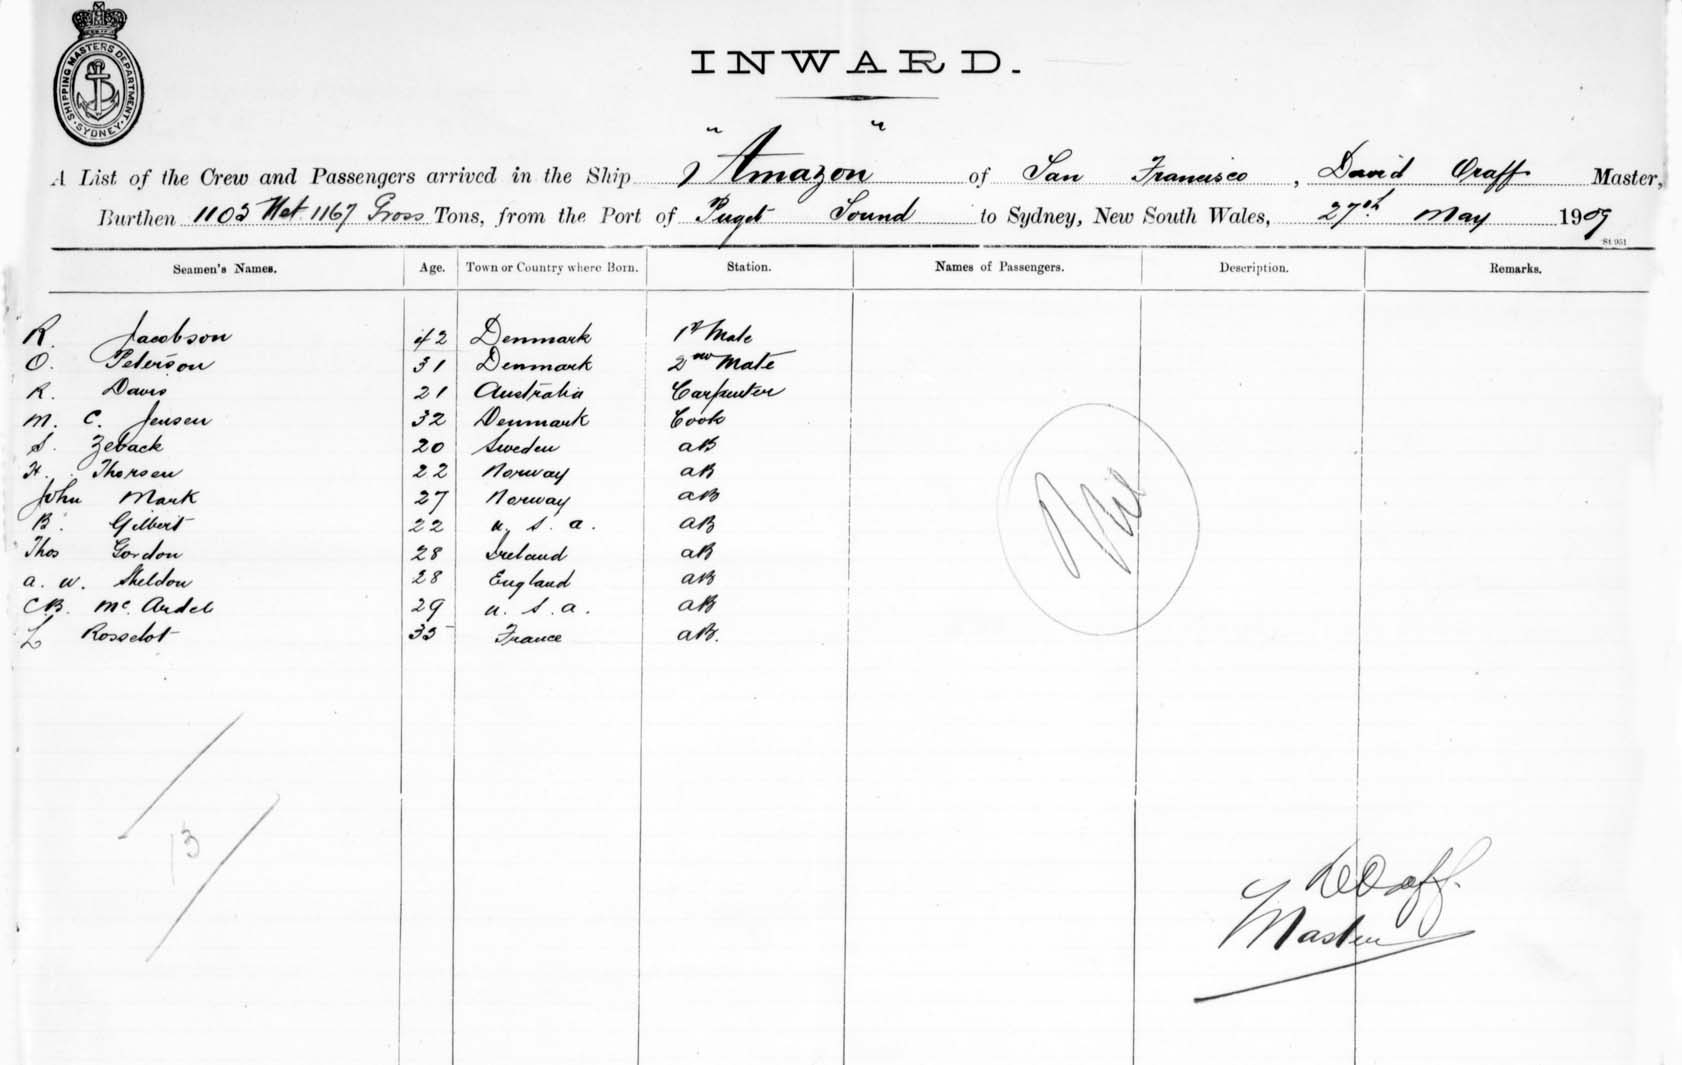 SHIPPING MASTERS DEPARTMENT. SYDNEY.
INWARD.
A List of the Crew and Passengers arrived in the Ship "Amazon" of San Francisco, David Graff Master,
Burthen 1103 Net 1167 Gross Tons, from the Port of Puget Sound to Sydney, New South Wales, 27th May 1909
St 951
Seamen's Names. Age. Town or Country where Born. Station. Names of Passengers. Description. Remarks.
R. Jacobson 42 Denmark 1st Mate
O. Peterson 31 Denmark 2nd Mate
R. Davis 21 Australia Carpenter
M. C. Jensen 32 Denmark Cook
S. Zeback 20 Sweden AB
H. Thorsen 22 Norway AB
John Mark 27 Norway AB
B. Gilbert 22 U. S. A. AB
Thos Gordon 28 Ireland AB
A. W. Sheldon 28 England AB
CB. McArdel 29 U. S. A. AB
L Rosselot 35 France AB.
Nil
13
Master